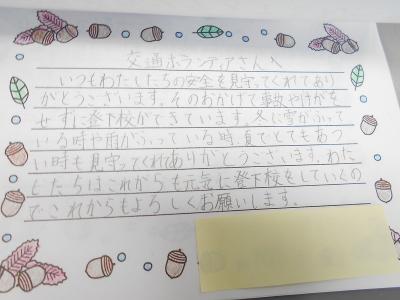 交通ボランティアさんへ
いつもわたしたちの安全を見守ってくれてあり
がとうございます。そのおかげで事故やけがを
せずに登下校ができています。冬に雪がふって
いる時や雨がふっている時、夏でとてもあつ
い時も見守ってくれてありがとうございます。わた
したちはこれからも元気に登下校をしていくの
でこれからもよろしくお願いします。